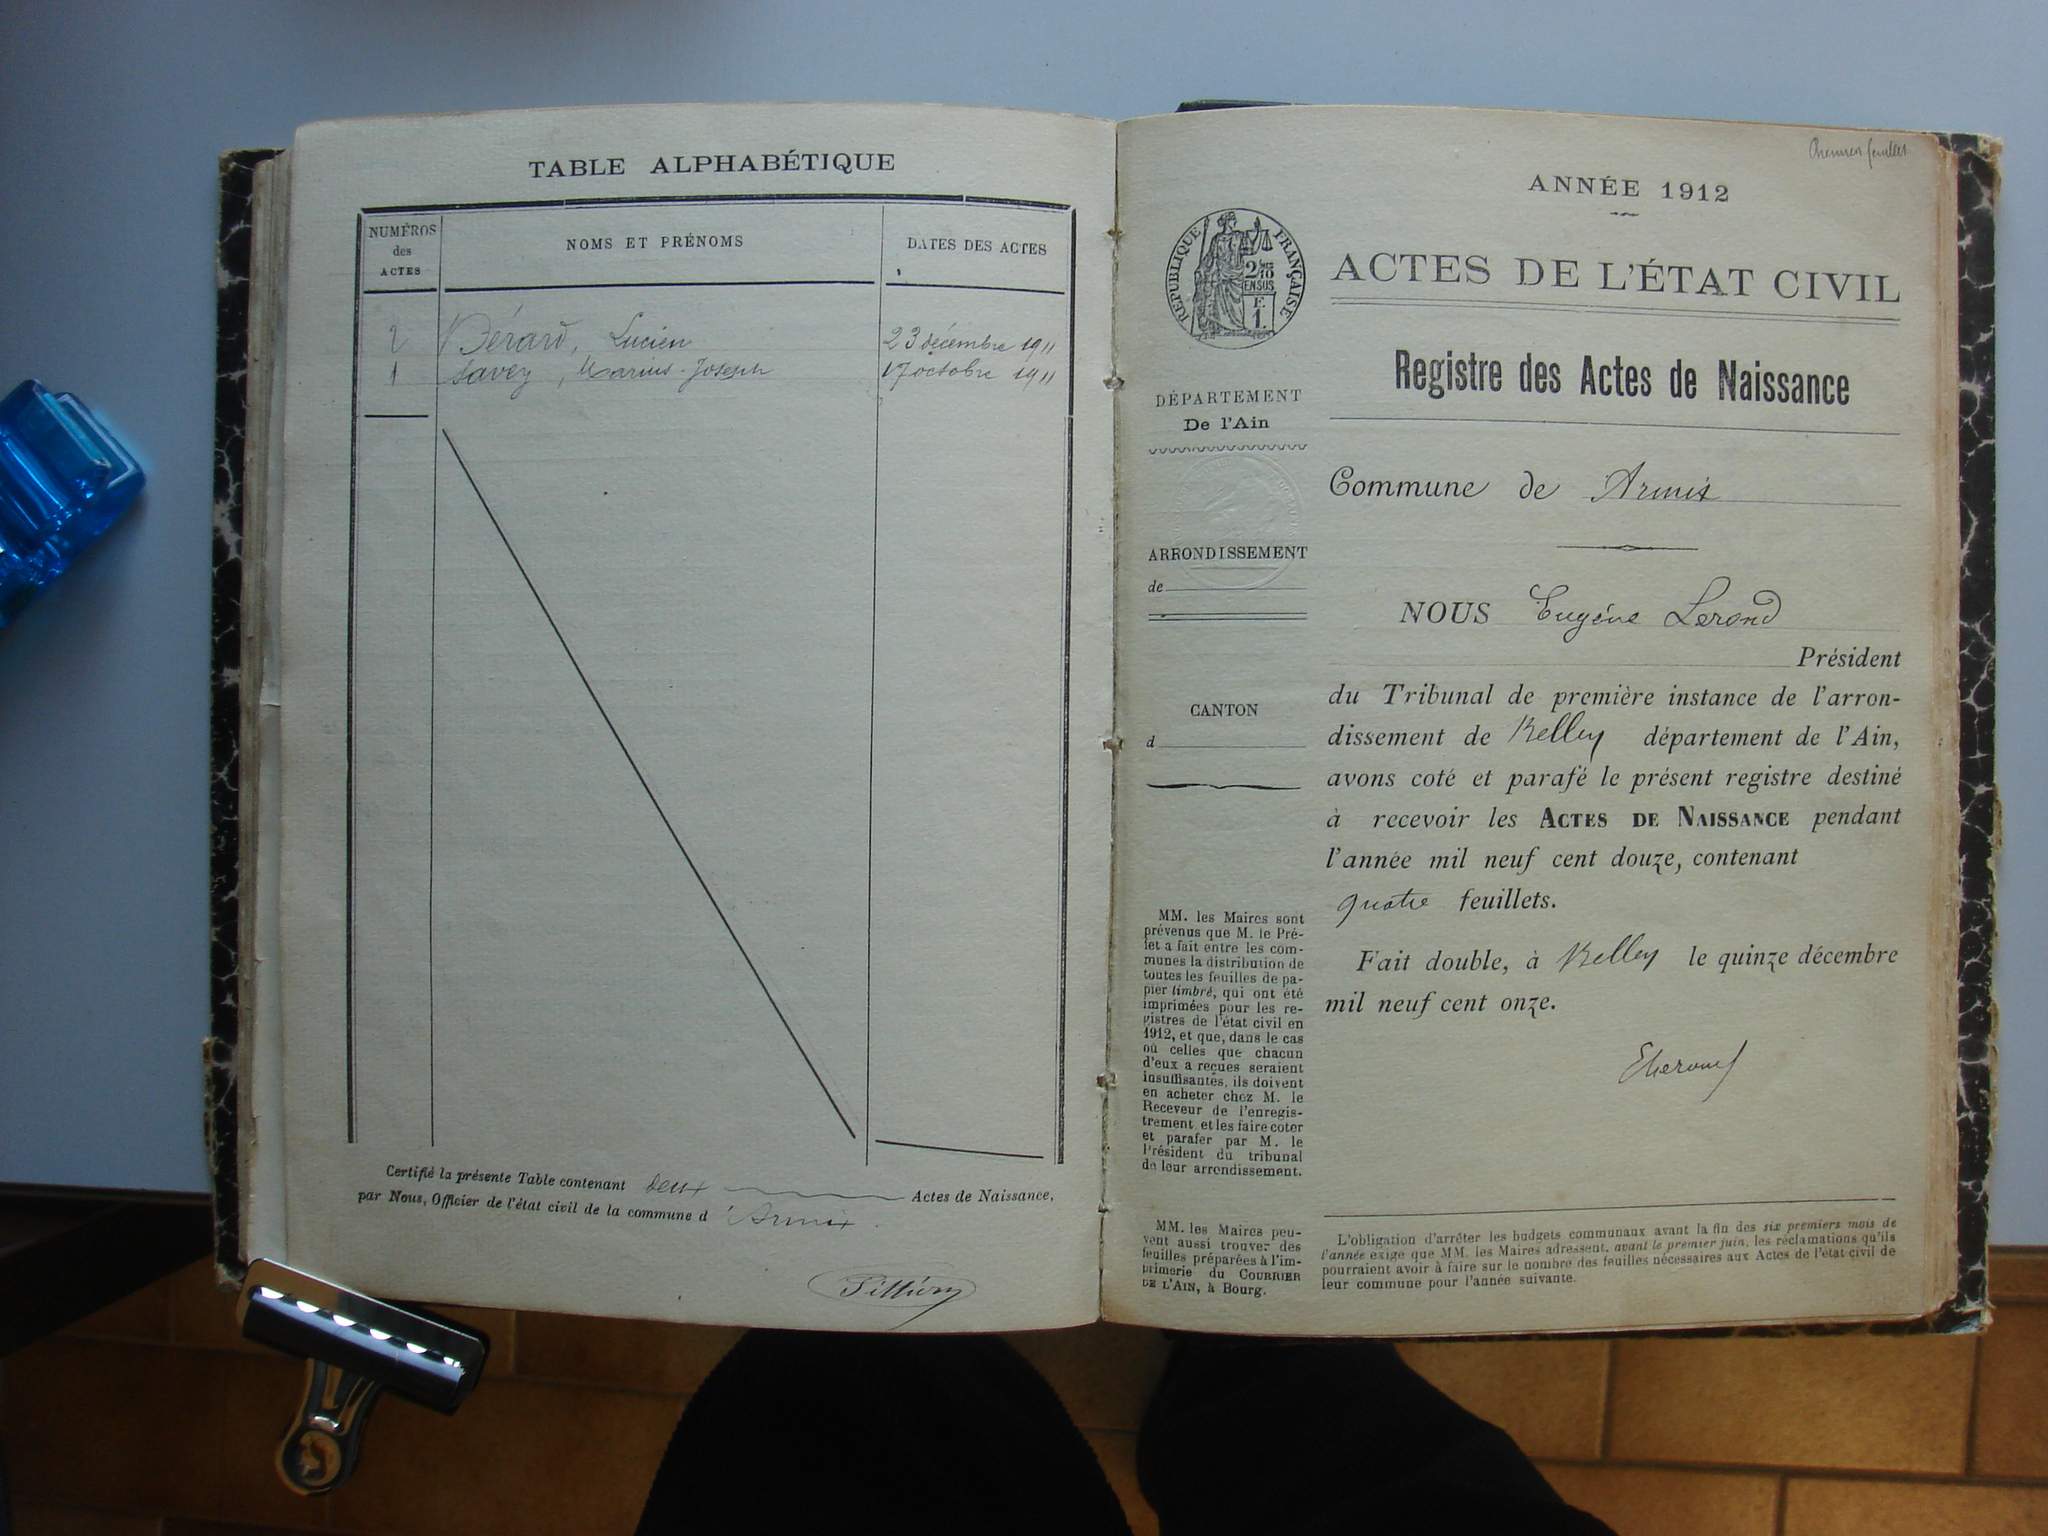 TABLE ALPHABÉTIQUE
NUMÉROS
des
ACTES
NOMS ET PRÉNOMS
DATES DES ACTES
2 Bérard, Lucien 23 décembre 1911
1 Savey, Marius-Joseph 17 octobre 1911
Certifié la présente Table contenant deux Actes de Naissance,
par Nous, Officier de l'état civil de la commune d'Armix.
ANNÉE 1912
RÉPUBLIQUE FRANÇAISE
ACTES DE L'ÉTAT CIVIL
Registre des Actes de Naissance
DÉPARTEMENT
De l'Ain
ARRONDISSEMENT
de
CANTON
d
MM. les Maires sont
prévenus que M. le Pré-
fet a fait entre les com-
munes la distribution de
toutes les feuilles de pa-
pier timbré, qui ont été
imprimées pour les re-
gistres de l'état civil en
1912, et que, dans le cas
où celles que chacun
d'eux a reçues seraient
insuffisantes, ils doivent
en acheter chez M. le
Receveur de l'enregis-
trement et les faire coter
et parafer par M. le
Président du tribunal
de leur arrondissement.
MM. les Maires peu-
vent aussi trouver des
feuilles préparées à l'im-
primerie du COURRIER
DE L'AIN, à Bourg.
Commune de Armix
NOUS Eugène Lerond
Président
du Tribunal de première instance de l'arron-
dissement de Belley département de l'Ain,
avons coté et parafé le présent registre destiné
à recevoir les ACTES DE NAISSANCE pendant
l'année mil neuf cent douze, contenant
quatre feuillets.
Fait double, à Belley le quinze décembre
mil neuf cent onze.
L'obligation d'arrêter les budgets communaux avant la fin des six premiers mois de
l'année exige que MM. les Maires adressent, avant le premier juin, les réclamations qu'ils
pourraient avoir à faire sur le nombre des feuilles nécessaires aux Actes de l'état civil de
leur commune pour l'année suivante.